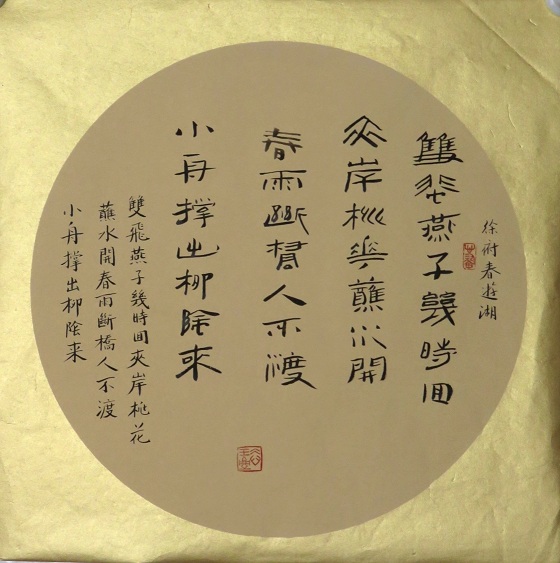 徐俯春遊湖
雙飛燕子幾時回
夾岸桃華蘸水開
春雨斷橋人不渡
小舟撐出柳陰來
雙飛燕子幾時回夾岸桃花
蘸水開春雨斷橋人不渡
小舟撐出柳陰来